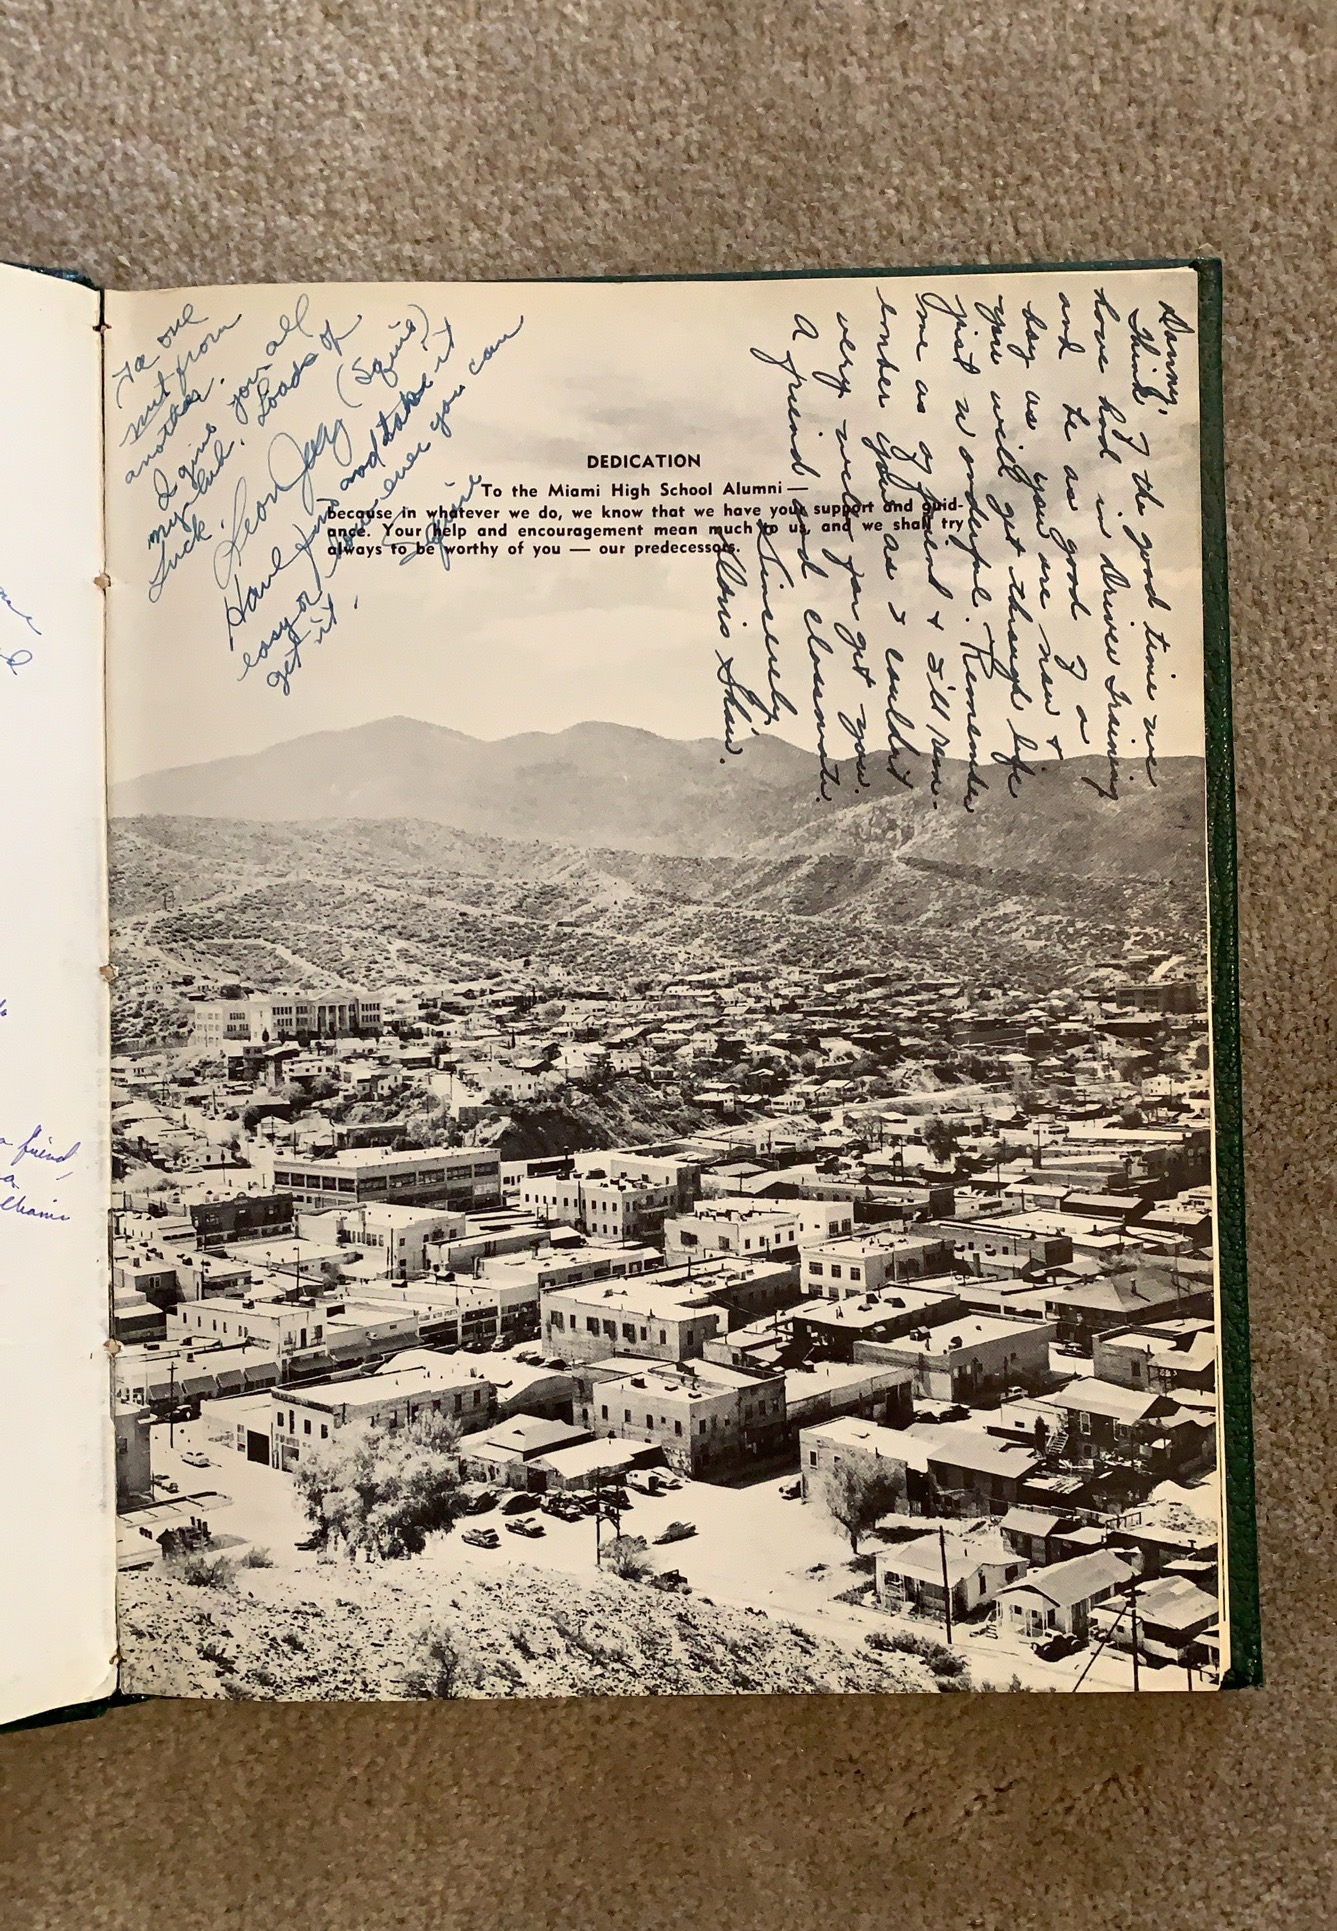 To one
nut from
another.
I give you all
my luck. Loads of
Luck.
Leon Jay (Squire)
Have fun and take it
easy or however you can
get it.
Squire
DEDICATION
To the Miami High School Alumni —
because in whatever we do, we know that we have your support and guid-
ance. Your help and encouragement mean much to us, and we shall try
always to be worthy of you — our predecessors.
Danny,
Think of the good time we
have had in Driver Training
and be as good of a
boy as you are now &
you will get through life
just wonderful. Remember
me as a friend & I'll rem-
ember you as I couldn't
very well forget you.
A friend and classmate.
Sincerely,
Shaw.
a friend,